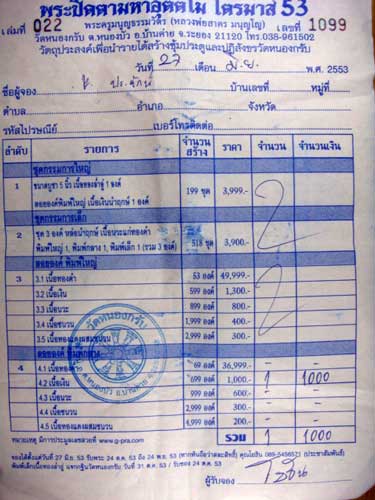 พระปิดตามหาลัดคิโม ไตรมาส 53
เล่มที่ 022 พระครูมนูญธรรมวัตร (หลวงพ่อสาคร มนุญโญ) เลขที่ 1099
วัดหนองกรับ ต.หนองบัว อ.บ้านค่าย จ.ระยอง 21120 โทร.038-961502
วัตถุประสงค์เพื่อนำรายได้สร้างซุ้มประตูและปฏิสังขรวัดหนองกรับ
วันที่ 27 เดือน มิ.ย. พ.ศ. 2553
ชื่อผู้จอง บ้านเลขที่ หมู่ที่
ตำบล อำเภอ จังหวัด
รหัสไปรษณีย์ เบอร์โทรติดต่อ
ลำดับ รายการ จำนวนสร้าง ราคา จำนวน จำนวนเงิน
ชุดกรรมการใหญ่
1 ขนาดบูชา 5 นิ้ว เนื้อทองลำอู่ 1 องค์ 199 ชุด 3,999.-
ลอยองค์พิมพ์ใหญ่ เนื้อเงินนำฤกษ์ 1 องค์
ชุดกรรมการเล็ก
2 ชุด 3 องค์ หล่อนำฤกษ์ เนื้อนวะแก่ทองคำ 518 ชุด 3,900.-
พิมพ์ใหญ่ 1, พิมพ์กลาง 1, พิมพ์เล็ก 1 (รวม 3 องค์)
ลอยองค์ พิมพ์ใหญ่
3 3.1 เนื้อทองคำ 53 องค์ 49,999.-
3.2 เนื้อเงิน 599 องค์ 1,300.-
3.3 เนื้อนวะ 899 องค์ 800.-
3.4 เนื้อชนวน 1,999 องค์ 400.-
3.5 เนื้อทองแดงผสมชนวน 2,999 องค์ 300.-
ลอยองค์ พิมพ์กลาง
4 4.1 เนื้อทองคำ 69 องค์ 36,999.- - -
4.2 เนื้อเงิน 699 องค์ 1,000.- 1 1000
4.3 เนื้อนวะ 999 องค์ 600.- - -
4.4 เนื้อชนวน 2,999 องค์ 300.- - -
4.5 เนื้อทองแดงผสมชนวน 4,999 องค์ 200.- - -
หมายเหตุ มีการประมูลเลขสวยที่ www.g-pra.com รวม 1 1000
จองได้ตั้งแต่วันที่ 27 มิ.ย. 53 ถึง 24 ต.ค. 53
ผู้รับจอง
วัดหนองกรับ